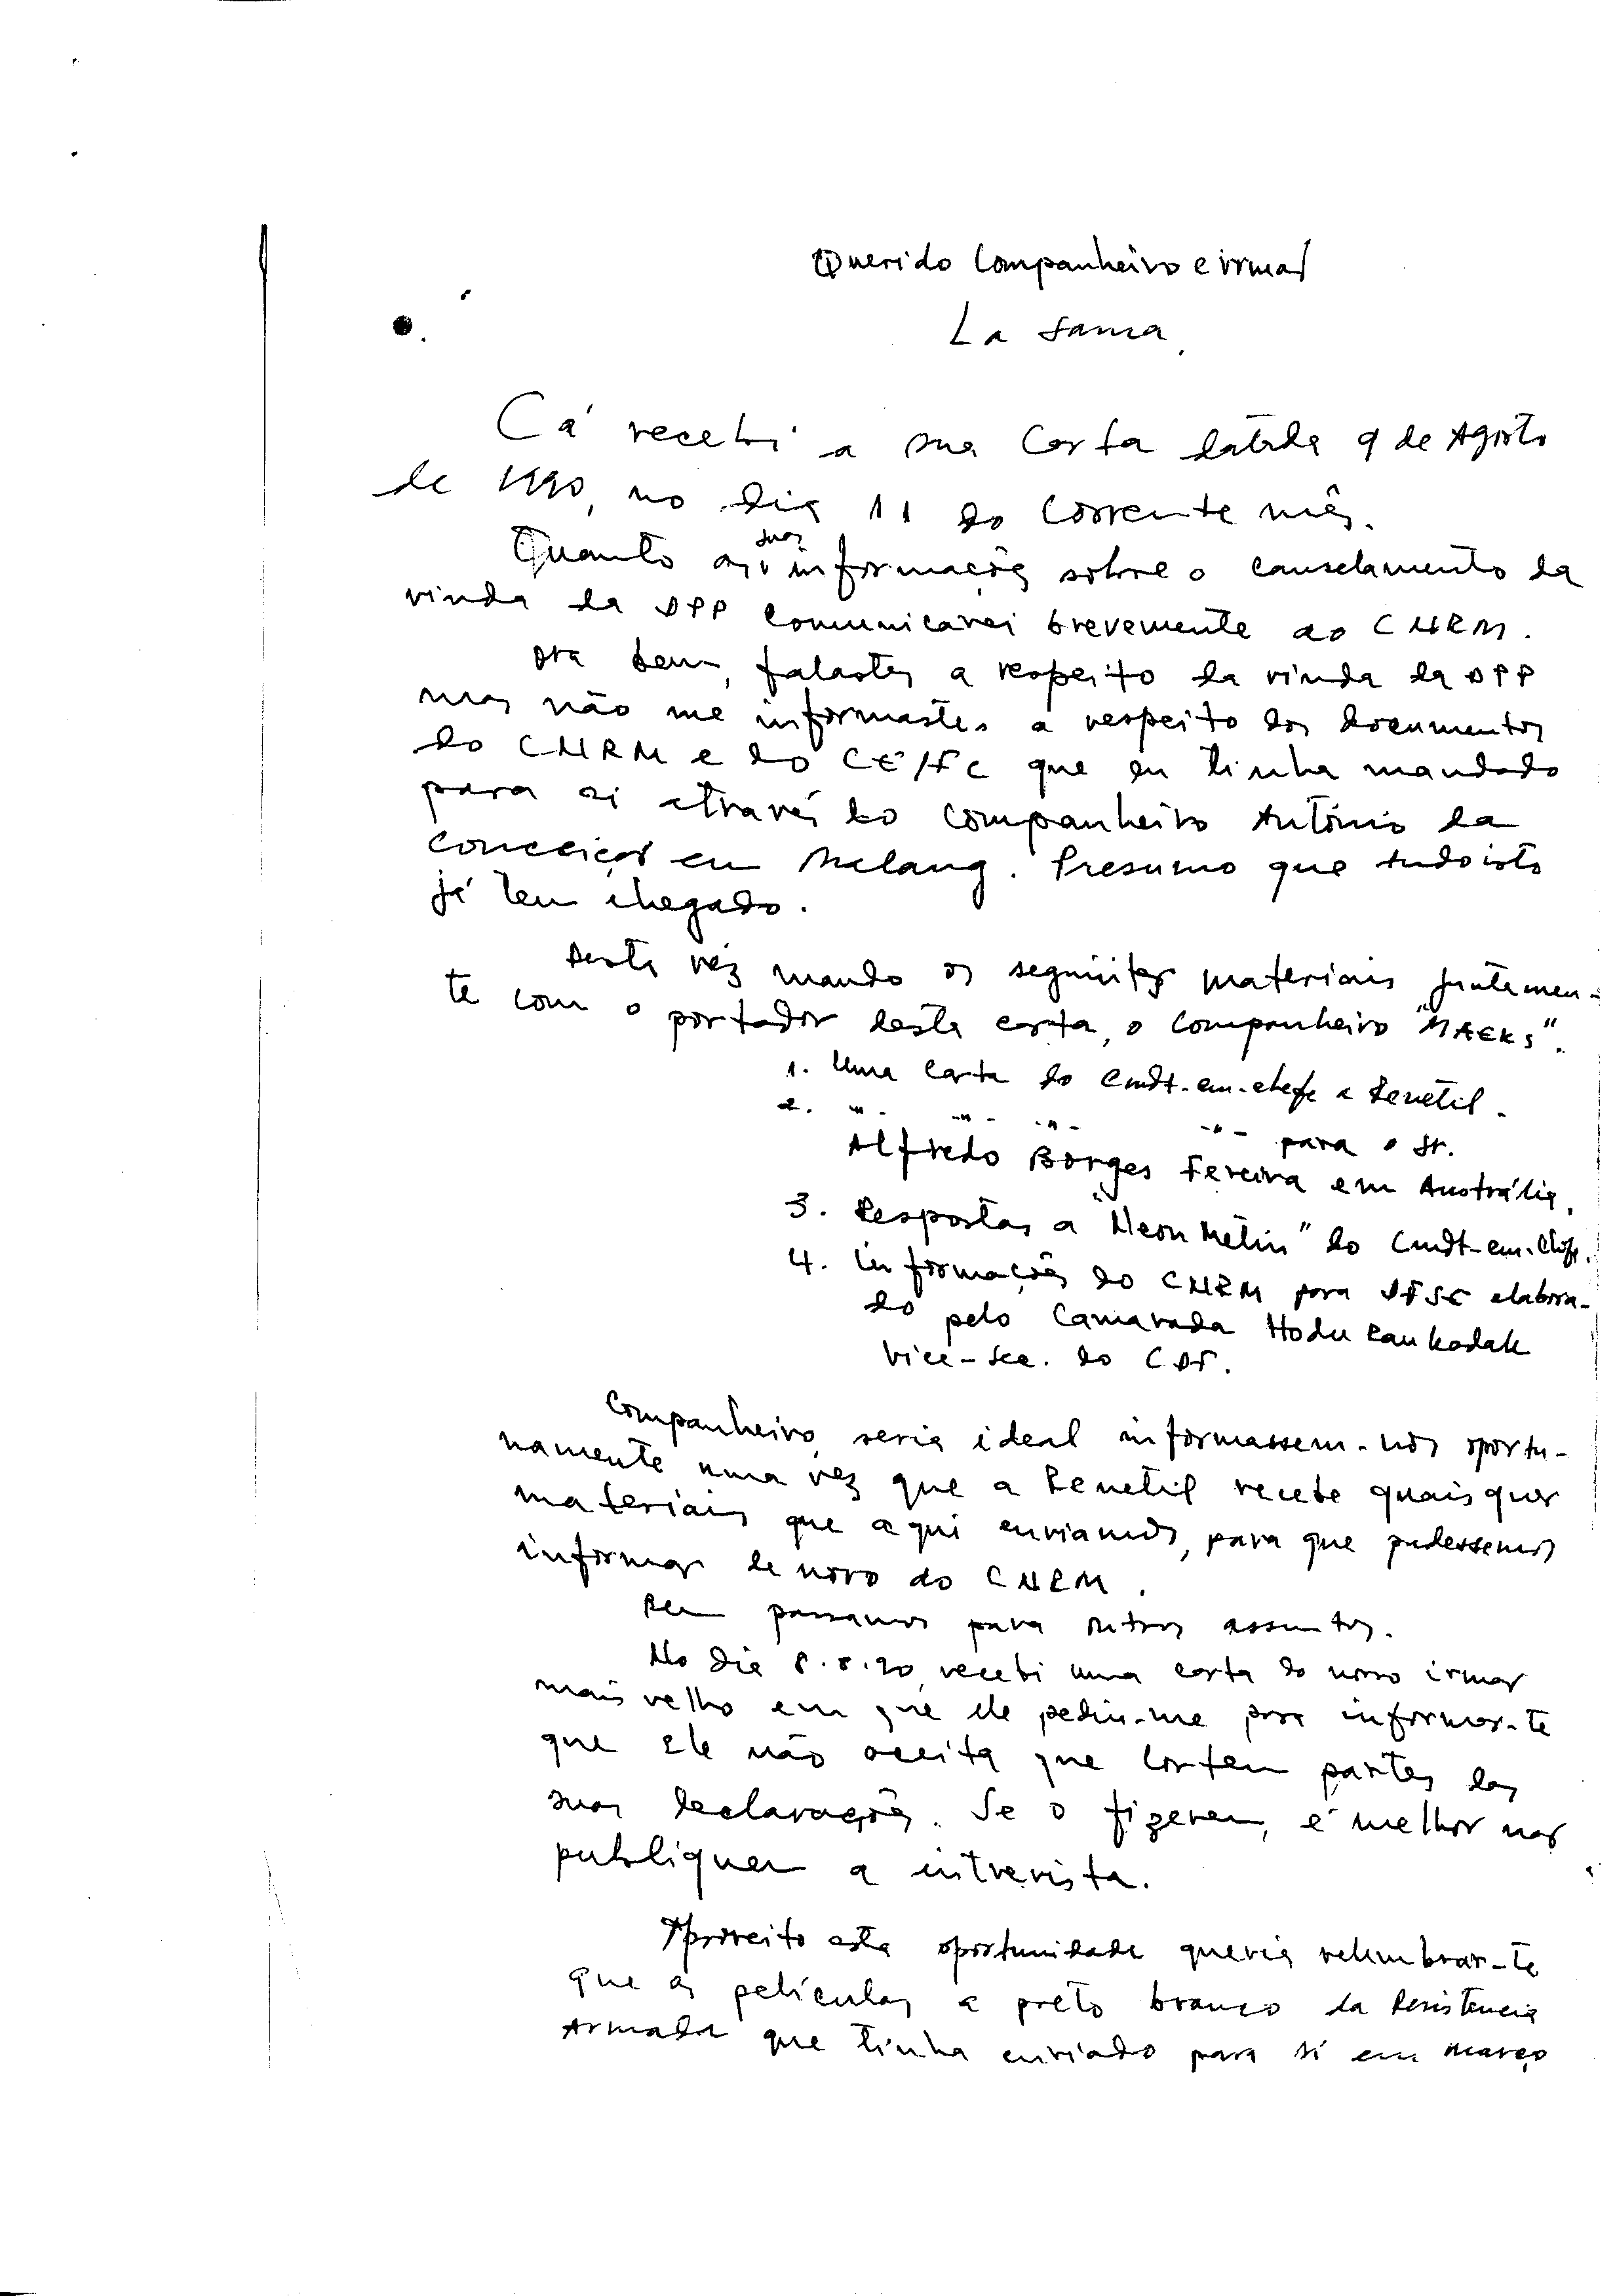 Querido Companheiro e irmão
La Sama,
Cá recebi a sua carta datada 9 de Agosto
de 1990, no dia 11 do corrente mês.
Quanto as suas informações sobre o canselamento da
vinda da DPP comunicarei brevemente ao CNRM.
Ora bem, falastes a respeito da vinda da DPP
mas não me informastes a respeito dos documentos
do CNRM e do CE/FC que eu tinha mandado
para si através do companheiro António da
Conceição em Malang. Presumo que tudo isto
já tem chegado.
Desta vez mando os seguintes materiais juntamen-
te com o portador desta carta, o companheiro "MAEKS".
1. Uma carta do Cmdt-em-chefe a Renetil.
2. -"- -"- -"- -"- para o Sr.
Alfredo Borges Fereira em Austrália.
3. Respostas a "Neon Metin" do Cmdt-em-Chefe.
4. Informações do CNRM para elabora-
do pelo Camarada Hodu Rankadalak
Vice-Sec. do
Companheiro, seria ideal informassem-nos oportu-
namente uma vez que a Renetil recebe quaisquer
materiais que aqui enviamos, para que pudessemos
informar de novo ao CNRM.
Bem passamos para outros assuntos.
No dia 8.8.90, recebi uma carta do nosso irmão
mais velho em que ele pediu-me para informar-te
que ele não aceita que cortem partes das
suas declarações. Se o fizerem, é melhor não
publiquem a entrevista.
Aproveito esta oportunidade queria relembrar-te
que as películas a preto branco da Resistencia
Armada que tinha enviado para si em março